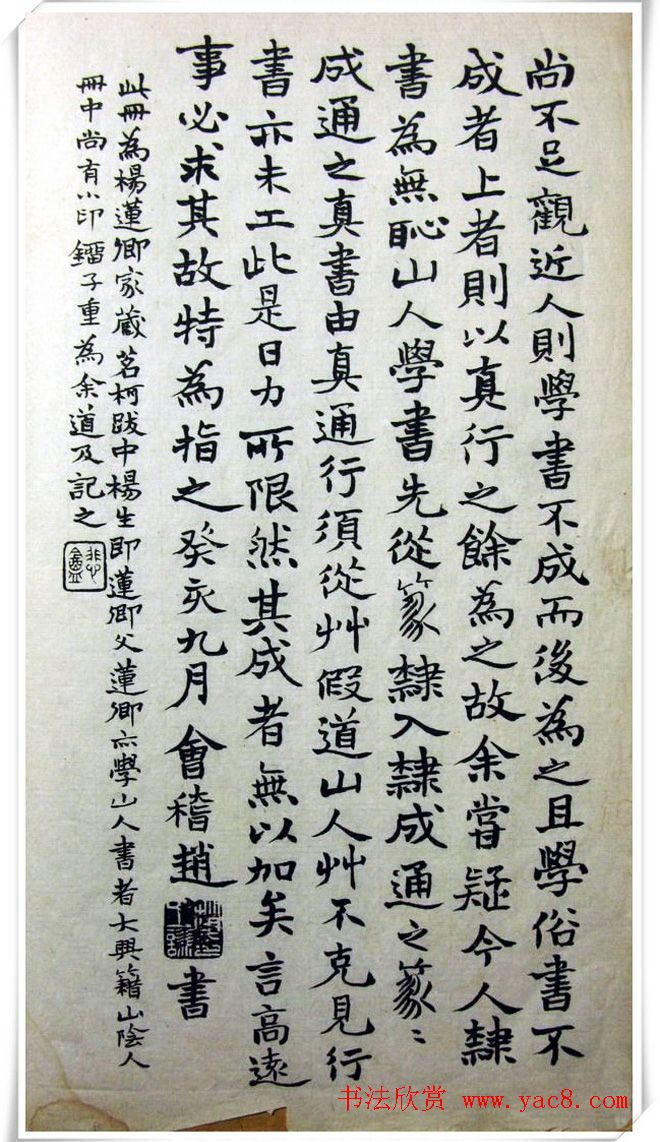 尚不足觀近人則學書不成而後為之且學俗書不
成者上者則以真行之餘為之故余嘗疑今人隸
書為無恥山人學書先從篆隸入隸成通之篆〻
成通之真書由真通行須從艸假道山人艸不克見行
書亦未工此是日力所限然其成者無以加矣言高遠
事必求其故特為指之癸亥九月會稽趙
書
此冊為楊蓮卿家藏茗柯跋中楊生即蓮卿父蓮卿亦學山人書者大興籍山陰人
冊中尚有小印鐂子重為余道及記之
书法欣赏 www.yac8.com